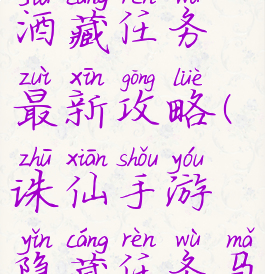 jiǔ cáng rèn wù
酒藏任务
zuì xīn gōng lüè
最新攻略(
zhū xiān shǒu yóu
诛仙手游
yǐn cáng rèn wù mǎ
隐藏任务马